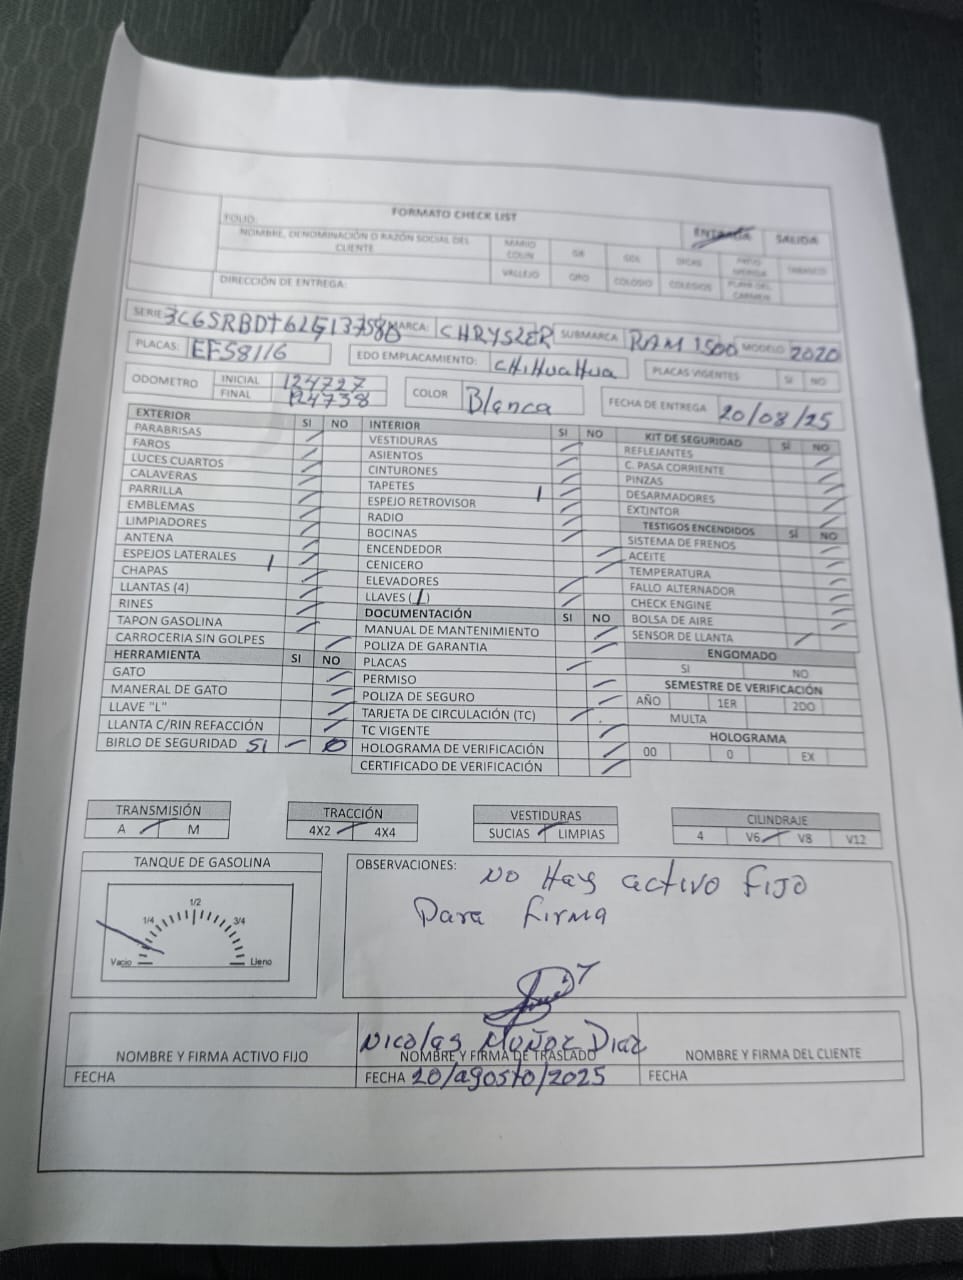 FORMATO CHECK LIST
FOLIO:
ENTRADA SALIDA
NOMBRE, DENOMINACIÓN O RAZÓN SOCIAL DEL CLIENTE
MARIO COLIN
VALLEJO QRO COLOSIO COLEGIOS PLAYA DEL CARMEN
DIRECCIÓN DE ENTREGA:
SERIE MARCA: CHRYSLER SUBMARCA RAM 1500 MODELO 2020
PLACAS: EF58116 EDO EMPLACAMIENTO: CHiHuaHua PLACAS VIGENTES SI NO
ODOMETRO INICIAL 124727
FINAL 124738
COLOR Blanca FECHA DE ENTREGA 20/08/25
EXTERIOR SI NO
PARABRISAS
FAROS
LUCES CUARTOS
CALAVERAS
PARRILLA
EMBLEMAS
LIMPIADORES
ANTENA
ESPEJOS LATERALES
CHAPAS
LLANTAS (4)
RINES
TAPON GASOLINA
CARROCERIA SIN GOLPES
HERRAMIENTA SI NO
GATO
MANERAL DE GATO
LLAVE "L"
LLANTA C/RIN REFACCIÓN
BIRLO DE SEGURIDAD SI
INTERIOR SI NO
VESTIDURAS
ASIENTOS
CINTURONES
TAPETES
ESPEJO RETROVISOR
RADIO
BOCINAS
ENCENDEDOR
CENICERO
ELEVADORES
LLAVES (1)
DOCUMENTACIÓN SI NO
MANUAL DE MANTENIMIENTO
POLIZA DE GARANTIA
PLACAS
PERMISO
POLIZA DE SEGURO
TARJETA DE CIRCULACIÓN (TC)
TC VIGENTE
HOLOGRAMA DE VERIFICACIÓN
CERTIFICADO DE VERIFICACIÓN
KIT DE SEGURIDAD SÍ NO
REFLEJANTES
C. PASA CORRIENTE
PINZAS
DESARMADORES
EXTINTOR
TESTIGOS ENCENDIDOS SÍ NO
SISTEMA DE FRENOS
ACEITE
TEMPERATURA
FALLO ALTERNADOR
CHECK ENGINE
BOLSA DE AIRE
SENSOR DE LLANTA
ENGOMADO
SI NO
SEMESTRE DE VERIFICACIÓN
AÑO 1ER 2DO
MULTA
HOLOGRAMA
00 0 EX
TRANSMISIÓN
A M
TRACCIÓN
4X2 4X4
VESTIDURAS
SUCIAS LIMPIAS
CILINDRAJE
4 V6 V8 V12
TANQUE DE GASOLINA
1/4 1/2 3/4
Vacio Lleno
OBSERVACIONES: No Hay activo FIJO
Para firma
Nicolas Muñoz Diaz
NOMBRE Y FIRMA ACTIVO FIJO NOMBRE Y FIRMA DE TRASLADO NOMBRE Y FIRMA DEL CLIENTE
FECHA FECHA 20/agosto/2025 FECHA